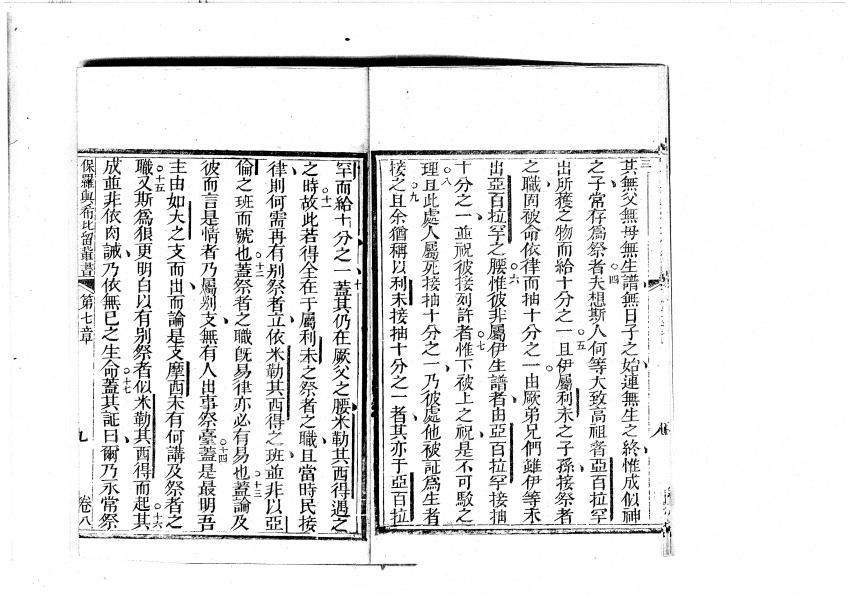 三
其無父無母無生譜無日子之始連無生之終惟成似神
之子常存為祭者夫想斯人何等大致高祖者亞百拉罕
四
出所獲之物而給十分之一且伊屬利未之子孫接祭者
五
之職固被命依律而抽十分之一由厥弟兄們雖伊等禾
出亞百拉罕之腰惟彼非屬伊生譜者由亞百拉罕接抽
六
十分之一並祝彼接列許者惟下被上之祝是不可駁之
七
理且此處人屬死接抽十分之一乃彼處他被証為生者
八
接之且余猶稱以利未接抽十分之一者其亦于亞百拉
九
罕而給十分之一蓋其仍在厥父之腰米勒其西得遇之
十
之時故此若得全在于屬利未之祭者之職且當時民接
十一
律則何需再有別祭者立依米勒其西得之班並非以亞
倫之班而號也蓋祭者之職既易律亦必有易也蓋論及
十二
十三
彼而言是情者乃屬別支無有人出事祭臺蓋是最明吾
十四
主由如大之支而出而論是支摩西未有何講及祭者之
職又斯為狠更明白以有別祭者似米勒其西得而起其
十五
十六
成並非依肉誡乃依無已之生命蓋其証曰爾乃永常祭
十七
保羅與希比留輩書
第七章
九
卷八